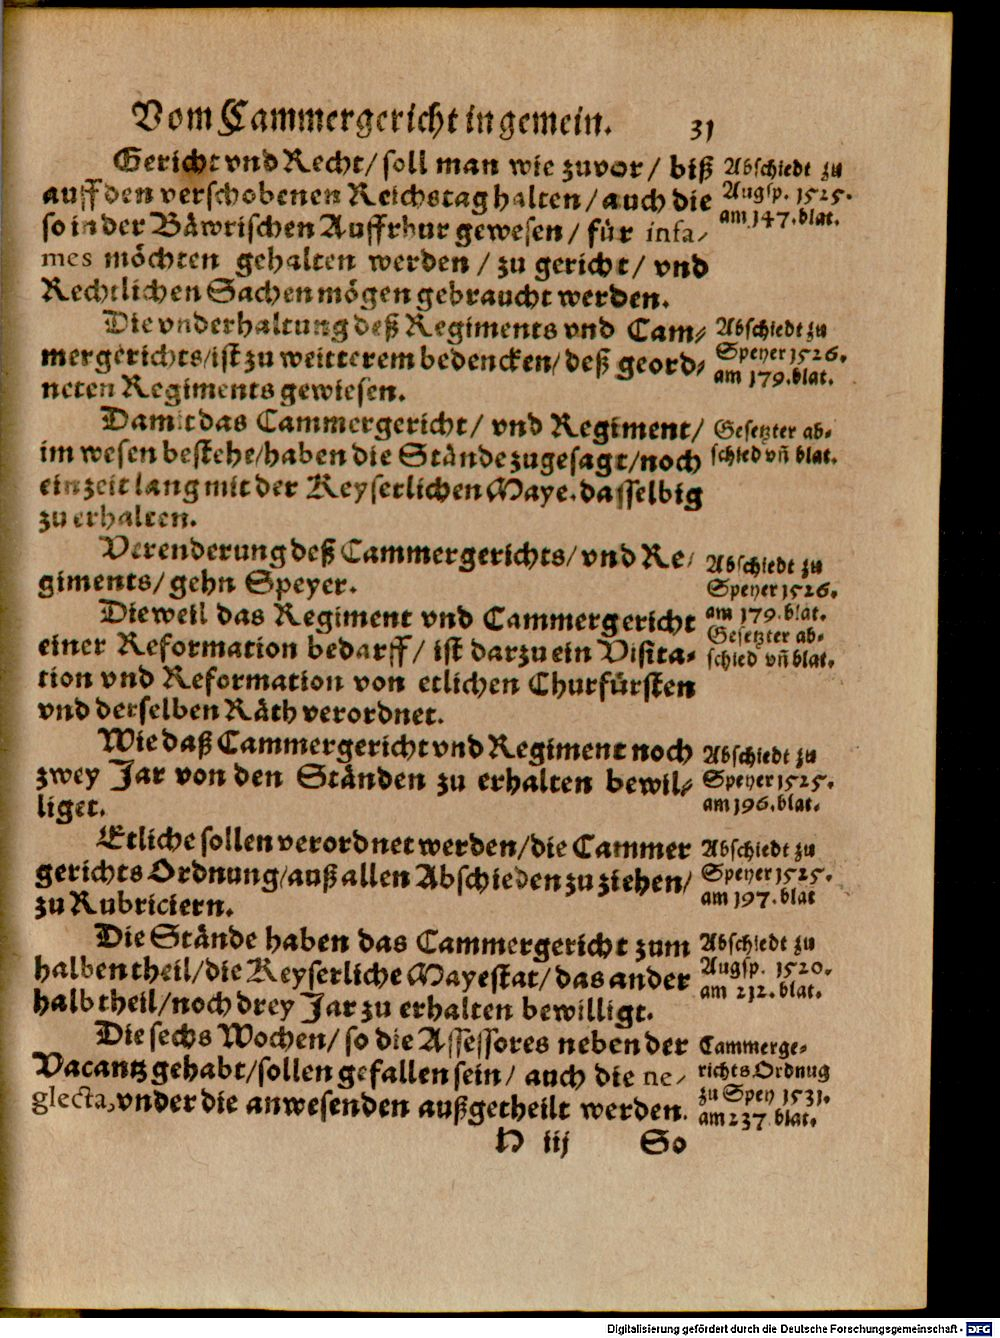 Vom Cammergericht in gemein. 31
Gericht vnd Recht/ soll man wie zuvor/ biß
auff den verschobenen Reichstag halten/ auch die
so in der Bäwrischen Auffrhur gewesen/ für infa-
mes möchten gehalten werden/ zu gericht/ vnd
Rechtlichen Sachen mögen gebraucht werden.
Abschiedt zu
Augsp. 1525.
am 147. blat.
Die vnderhaltung deß Regiments vnd Cam-
mergerichts/ ist zu weitterem bedencken/ deß geord-
neten Regiments gewiesen.
Abschiedt zu
Speyer 1526.
am 179. blat.
Damit das Cammergericht/ vnd Regiment/
im wesen bestehe/ haben die Stände zugesagt/ noch
ein zeit lang mit der Keyserlichen Maye. dasselbig
zu erhalten.
Gesetzter ab-
schied vñ blat.
Verenderung deß Cammergerichts/ vnd Re-
giments/ gehn Speyer.
Abschiedt zu
Speyer 1526.
am 179. blat.
Dieweil das Regiment vnd Cammergericht
einer Reformation bedarff/ ist darzu ein Visita-
tion vnd Reformation von etlichen Churfürsten
vnd derselben Räth verordnet.
Gesetzter ab-
schied vñ blat.
Wie daß Cammergericht vnd Regiment noch
zwey Jar von den Ständen zu erhalten bewil-
liget.
Abschiedt zu
Speyer 1525.
am 196. blat.
Etliche sollen verordnet werden/ die Cammer
gerichts Ordnung/ auß allen Abschieden zu ziehen/
zu Rubriciern.
Abschiedt zu
Speyer 1525.
am 197. blat
Die Stände haben das Cammergericht zum
halben theil/ die Keyserliche Mayestat/ das ander
halb theil/ noch drey Jar zu erhalten bewilligt.
Abschiedt zu
Augsp. 1520.
am 212. blat.
Die sechs Wochen/ so die Assessores neben der
Vacantz gehabt/ sollen gefallen sein/ auch die ne-
glecta, vnder die anwesenden außgetheilt werden.
Cammerge-
richts Ordnug
zu Spey 1531.
am 237 blat.
H iij So
Digitalisierung gefördert durch die Deutsche Forschungsgemeinschaft - DFG